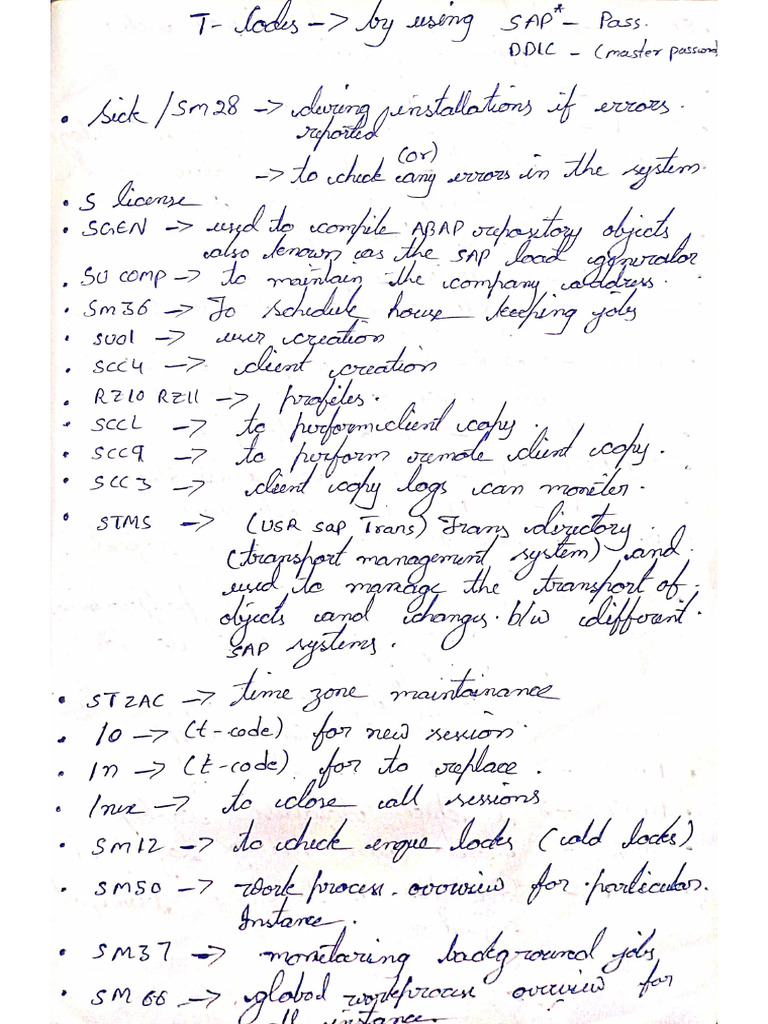 T-Codes -> by using SAP* - Pass.
DDIC - (master password
• Sick / Sm28 -> during installations if errors.
reported
(or)
-> to check any errors in the system.
• S license.
• SGEN -> used to compile ABAP repository objects
also known as the SAP load generator
• SU COMP -> to maintain the company address.
• Sm36 -> To schedule house keeping jobs
• SU01 -> user creation
• SCC4 -> client creation
• RZ10 RZ11 -> profiles.
• SCCL -> to perform client copy.
• SCC9 -> to perform remote client copy.
• SCC3 -> client copy logs can moniter.
• STMS -> (USR sap Trans) Trans directory.
(transport management system) and
used to manage the transport of
objects and changes. b/w different.
SAP systems.
• STZAC -> time zone maintainance
• /o -> (t-code) for new session.
• /n -> (t-code) for to replace.
• /nex -> to close all sessions
• Sm12 -> to check enque locks (old locks)
• SM50 -> Work process overview for particular.
Instance.
• SM37 -> monetaring background jobs
• SM66 -> global workprocess overview for
all instance.